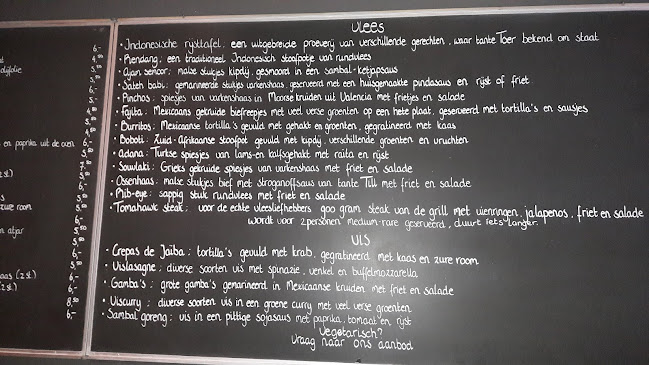 6,-
4,50
dyfolie
5,-
5,-
6,-
5,-
4,50
4,50
en paprika uit de oven
5,-
5,-
5,-
zure room
5,-
5,-
6,-
(2 st.)
6,-
6,-
8,50
6,-
Vlees
• Indonesische rijsttafel: een uitgebreide proeverij van verschillende gerechten, waar tante Toer bekend om staat
• Rendang: een traditioneel Indonesisch stoofpotje van rundvlees
• Ajam sencor: malse stukjes kipdij, gesmoord in een sambal-ketjapsaus
• Sateh babi: gemarineerde stukjes varkenshaas, geserveerd met een huisgemaakte pindasaus en rijst of friet
• Pinchos: spiesjes van varkenshaas in Moorse kruiden uit Valencia met frietjes en salade
• Fajita: Mexicaans gekruide biefreepjes met veel verse groenten op een hete plaat, geserveerd met tortilla's en sausjes
• Burritos: Mexicaanse tortilla's gevuld met gehakt en groenten, gegratineerd met kaas
• Boboti: Zuid-Afrikaanse stoofpot gevuld met kipdij, verschillende groenten en vruchten
• Adana: Turkse spiesjes van lams-en kalfsgehakt met raita en rijst
• Souvlaki: Grieks gekruide spiesjes van varkenshaas met friet en salade
• Ossenhaas: malse stukjes bief met stroganoffsaus van tante Till met friet en salade
• Rib-eye: sappig stuk rundvlees met friet en salade
• Tomahawk steak: voor de echte vleesliefhebbers 900 gram steak van de grill met uienringen, jalapenos, friet en salade
wordt voor 2 personen medium-rare geserveerd, duurt iets langer.
Vis
• Crepas de Jaiba: tortilla's gevuld met krab, gegratineerd met kaas en zure room
• Vislasagne: diverse soorten vis met spinazie, venkel en buffelmozzarella
• Gamba's: grote gamba's gemarineerd in Mexicaanse kruiden met friet en salade
• Viscurry: diverse soorten vis in een groene curry met veel verse groenten
• Sambal goreng: vis in een pittige sojasaus met paprika, tomaat en rijst
Vegetarisch?
Vraag naar ons aanbod